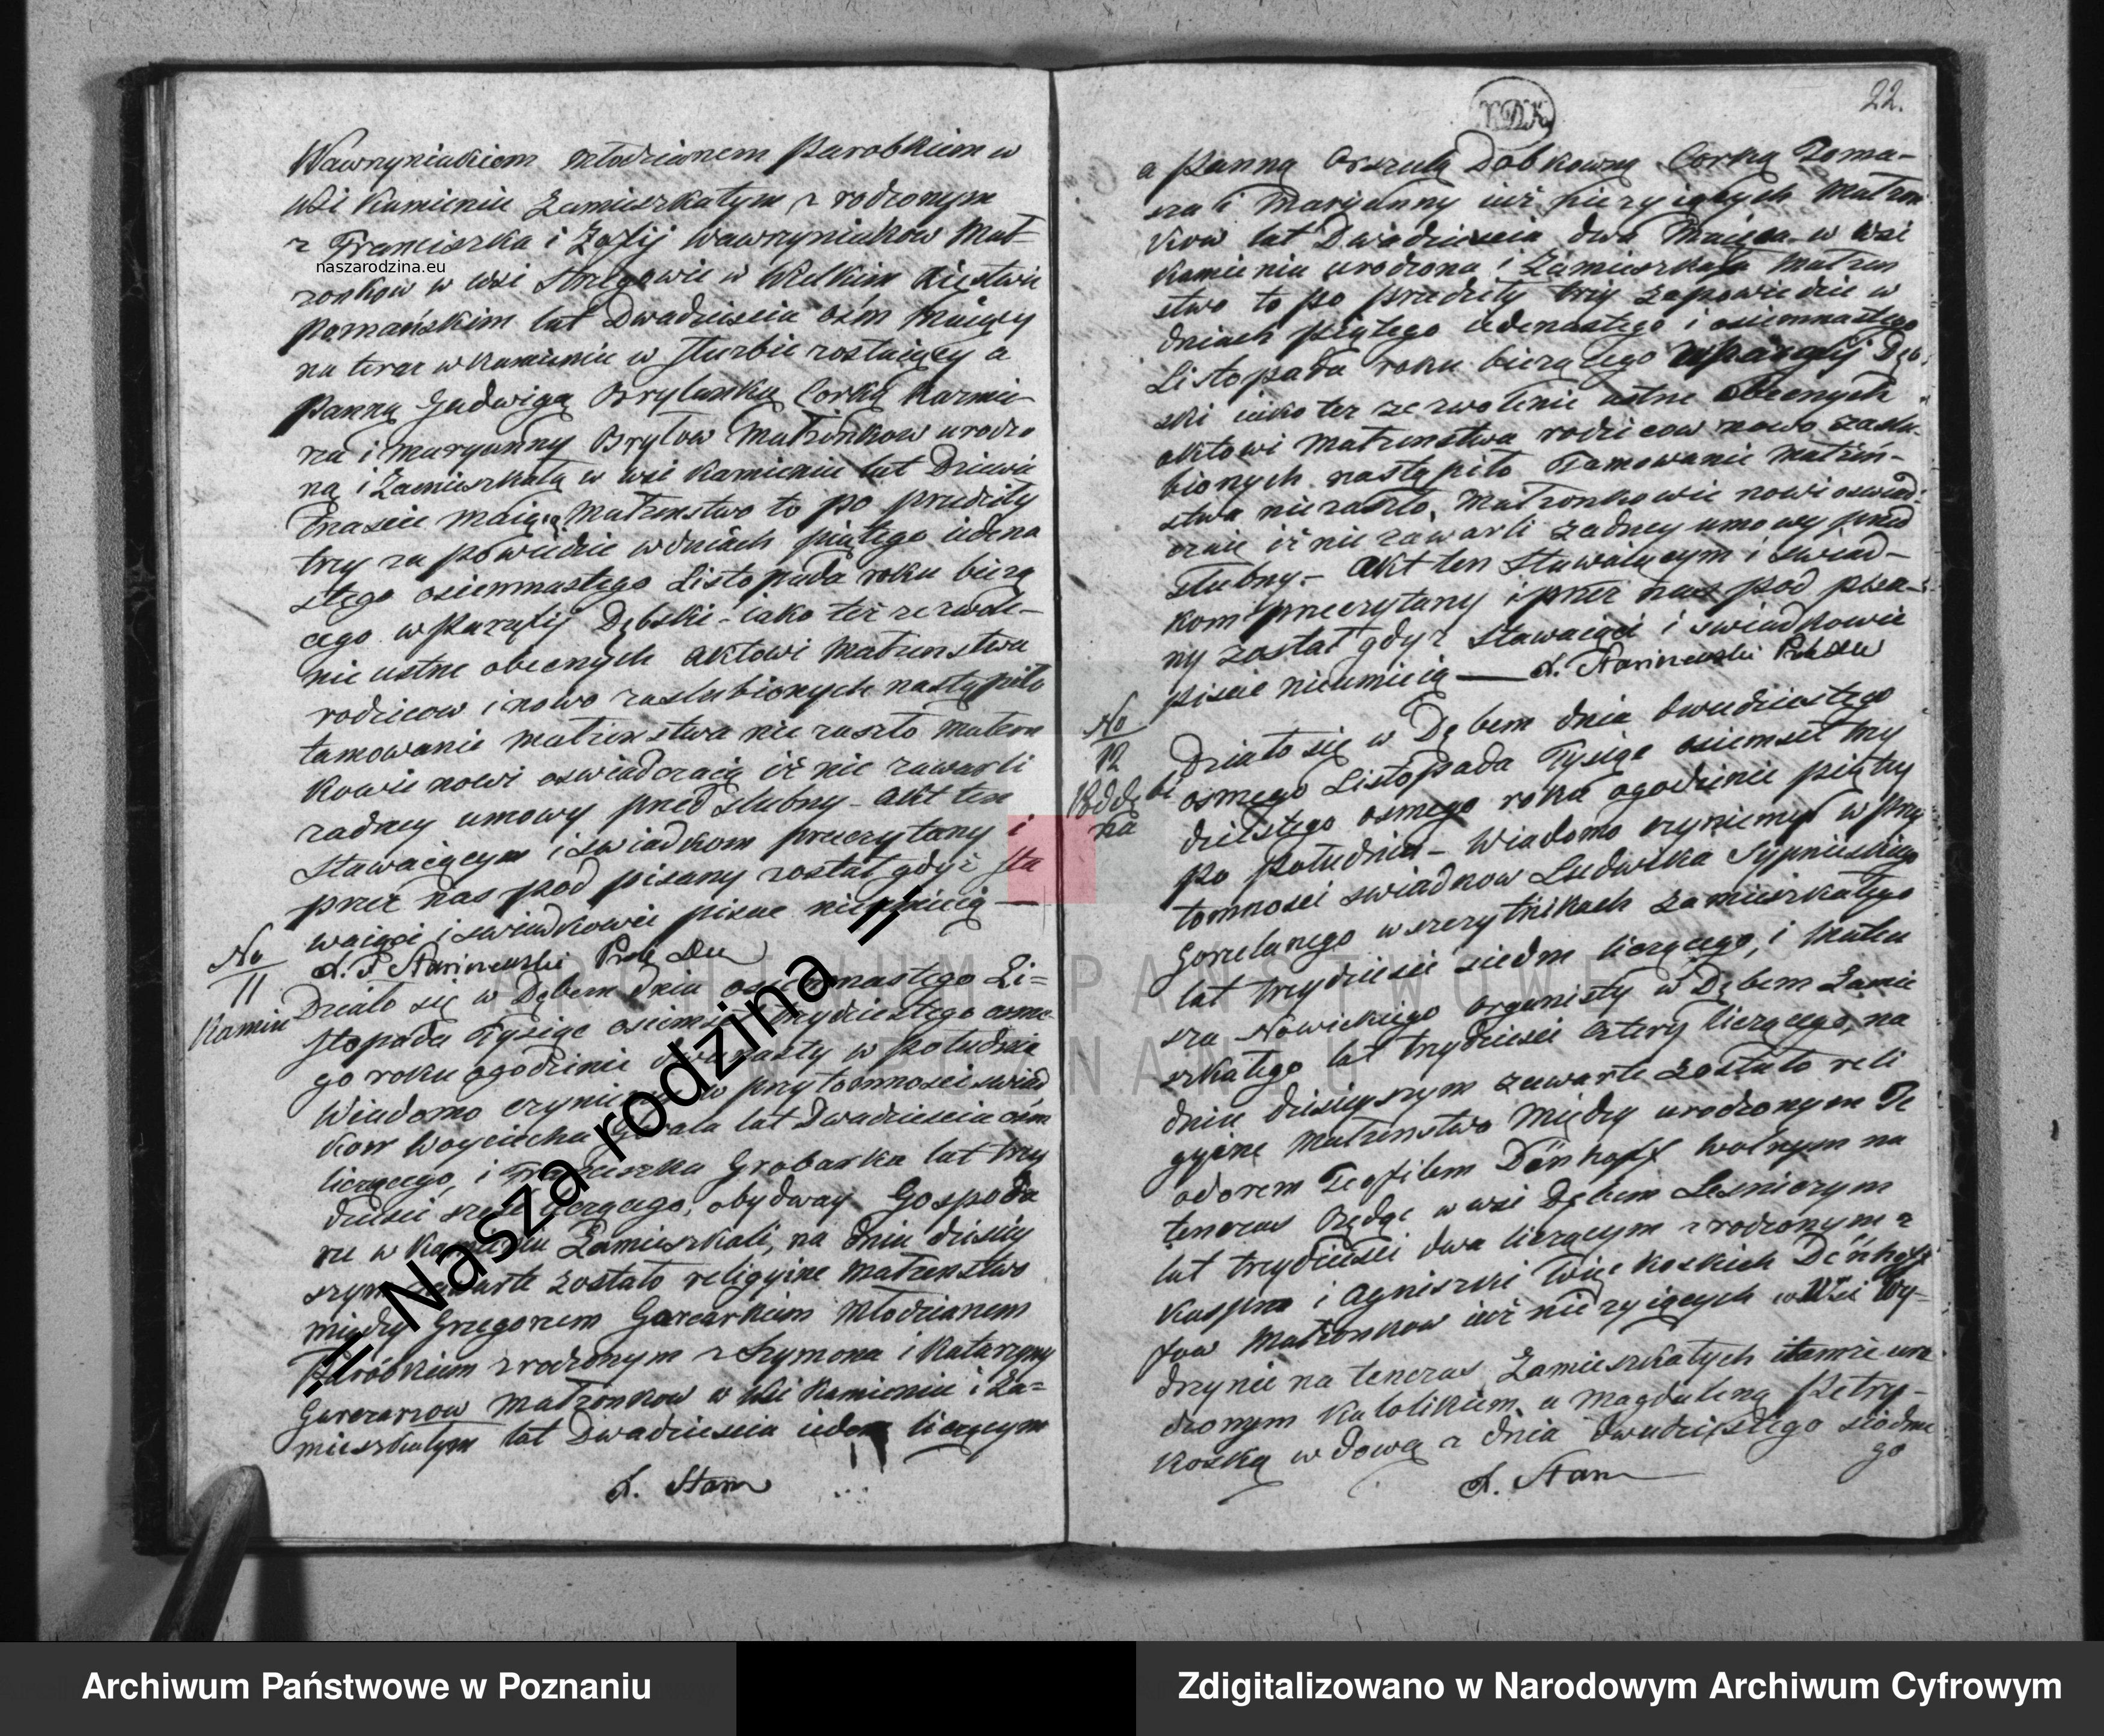 Wawrzyniakiem Młodzianem Parobkiem w
wsi Kamieniu Zamieszkałym z rodzonym
z Franciszka i Zofij Wawrzyniakow Mał=
naszarodzina.eu
zonkow w wsi w Wielkim Xięstwie
Poznańskim lat Dwadzieścia ośm maiący
na teraz w Kamieniu w służbie zostaiący a
Panną Jadwigą Brylanką Corką Kazmie-
rza i Maryanny Brylow Małżonkow urodzo
ną i Zamieszkałą w wsi Kamieniu lat Dziewię
tnascie maiącą Małzenstwo to po przedziły
trzy za powiedzie w dniach piątego iedena
stego osiemnastego Listopada roku bieżą
cego w Parafij Dębski - iako też zezwole-
nie ustne obecnych aktowi Małżenstwa
rodzicow i nowo zaslubionych nastąpiło
tamowanie Małżenstwa nie zaszło Małżon
kowie nowi oswiadczaią iż nie zawarli
zadney umowy przed slubny - Akt ten
Stawaiącym i swiadkom przeczytany i
przez nas pod pisany został gdyż Sta
waiący i swiadkowie pisac nieumieią —
No
11
Kamin
Działo się w Dębem dnia osiemnastego Li=
stopada Tysiąc osiemset trzydziestego osme-
go roku ogodzinie dwunasty w Południe
Wiadomo czyniemy w przytomnosci swiad
kow Woyciecha lat Dwadziescia ośm
liczącego, i Franciszka Grobarka lat trzy
dziesci szesc liczącego, obydway Gospoda
rze w Kamieniu Zamieszkali, na dniu dzisiey
szym zawarte zostało religijne Małzenstwo
między Grzegorzem Garcarkiem Młodzianem
Parobkiem z rodzonym z Szymona i Katarzyny
Garczarzow Małżonkow w wsi Kamieniu i Za=
mieszkałym lat Dwadziescia ieden liczącym
A. Stam
= Nasza rodzina =
22.
a Panną Orszulą Dobkowną Corką Toma-
sza i Maryanny iuż nieżyiących Małżon
kow lat Dwadziescia dwa maiąca w wsi
Kamieniu urodzona i Zamieszkała Małżen
stwo to po przedziły trzy zapowiedzie w
dniach piątego iedenastego i osiemnastego
Listopada roku bieżącego w parafij Dęb
ski iako tez zezwolenie ustne obecnych
aktowi Małzenstwa rodzicow nowo zaslu-
bionych nastąpiło Tamowanie Małżeń-
stwa nie zaszło, Małżonkowie nowi oswiad-
czaią iż nie zawarli zadney umowy przed
slubny - Akt ten Stawaiącym i swiad-
kom przeczytany i przez nas pod pisa-
ny został gdyż Stawaiący i swiadkowie
pisać nieumieią —
No
12
na
Działo się w Dębem dnia dwudziestego
osmego Listopada Tysiąc osiemset trzy
dziestego osmego roku ogodzinie piąty
po Południu - Wiadomo czyniemy w przy
tomnosci swiadkow Ludwika Sypniewskiego
Gorzelanego w szczytnikach zamieszkałego
lat trzydziesci siedm liczącego, i Mateu
sza Nowickiego organisty w Dębem Zamie
szkałego lat trzydziesci cztery liczącego, na
dniu dzisieyszym zawarte zostało reli
gijne Małzenstwo między urodzonym Te
odorem Teofilem Dönhoff wolnym na
tenczas Będąc w wsi Dębem Lesniczym
lat trzydziesci dwa liczącym z rodzonym z
Kaspra i Agniszki Dönhof
fow Małżonkow iuż nieżyiących w Wsi Wy-
drzynie na tenczas Zamieszkałych i tamże uro
dzonym Katolikiem a Magdaleną Petry-
koską wdową z dnia dwudziestego siodme
go
A. Stam
ARCHIWUM PAŃSTWOWE
W POZNANIU
Archiwum Państwowe w Poznaniu
Zdigitalizowano w Narodowym Archiwum Cyfrowym